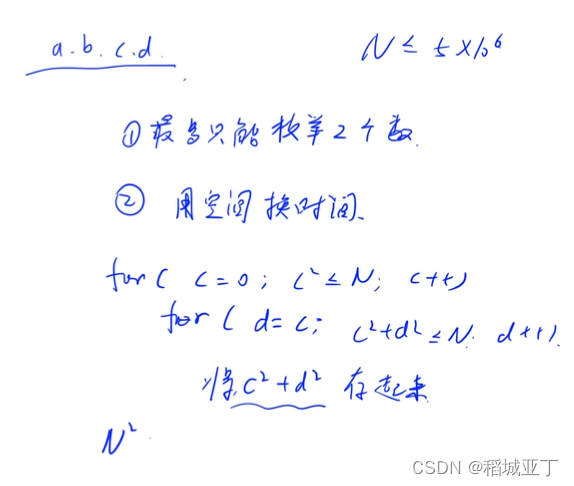 a.b.c.d. N ≤ 5×10⁶
① 最多只能枚举2个数.
② 用空间换时间.
for( c=0; c²≤N; c++)
for( d=c; c²+d²≤N; d++)
将c²+d²存起来
N²
CSDN @稻城亚丁